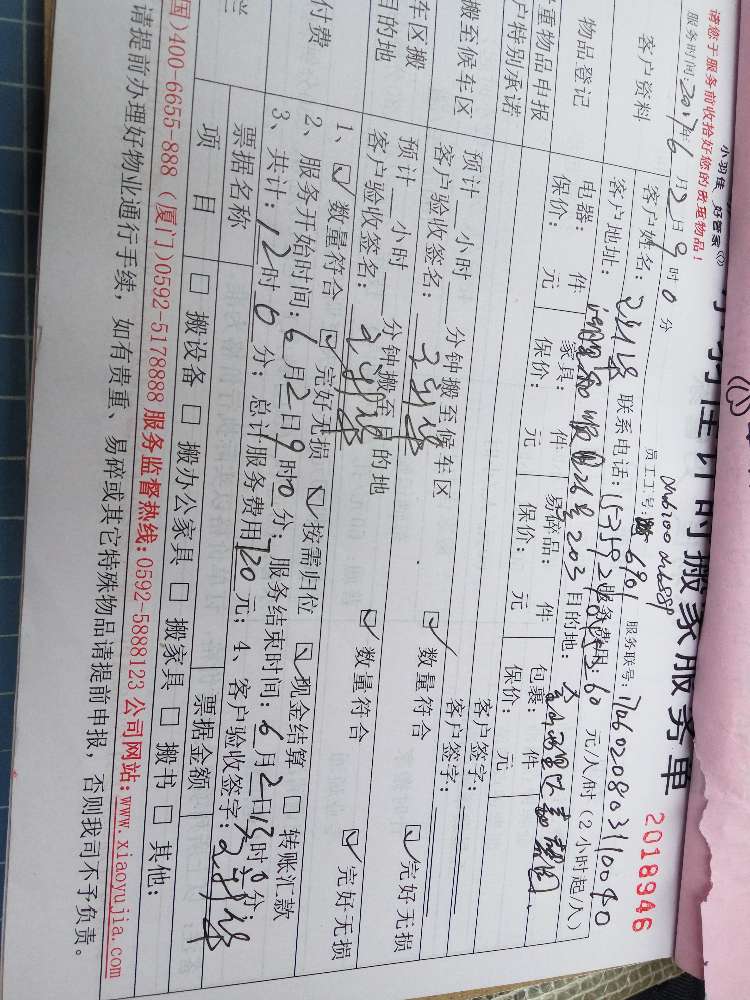 小羽佳 好管家
时搬家服务单
2018946
请您于服务前收拾好您的贵重物品！
服务时间：2017年6月2日9时0分
员工工号：
服务联号：1706020803110040
客户资料
客户姓名：
联系电话：
服务费用：60 元/人/时（2小时起/人）
客户地址：
26号203
目的地：
物品登记
电器： 件
家具： 件
易碎品： 件
包裹： 件
保价： 元
保价： 元
保价： 元
保价： 元
贵重物品申报
客户签字：
户特别承诺
客户签字：
搬至候车区
预计 小时 分钟搬至候车区
客户验收签名：
数量符合
完好无损
车区搬
目的地
预计 小时 分钟搬至目的地
客户验收签名：
数量符合
完好无损
付费
1、 ☑数量符合 ☑完好无损 ☑按需归位 ☑现金结算 □转账汇款
2、服务开始时间：6月2日9时0分；服务结束时间：6月2日13时0分；
3、共计：12时0分；总计服务费用720元；4、客户验收签字：
票据名称
票据金额
项 目
□ 搬设备 □ 搬办公家具 □ 搬家具 □ 搬书 □ 其他：
国)400-6655-888（厦门)0592-5178888 服务监督热线：0592-5888123 公司网站：www.xiaoyujia.com
请提前办理好物业通行手续，如有贵重、易碎或其它特殊物品请提前申报，否则我司不予负责。